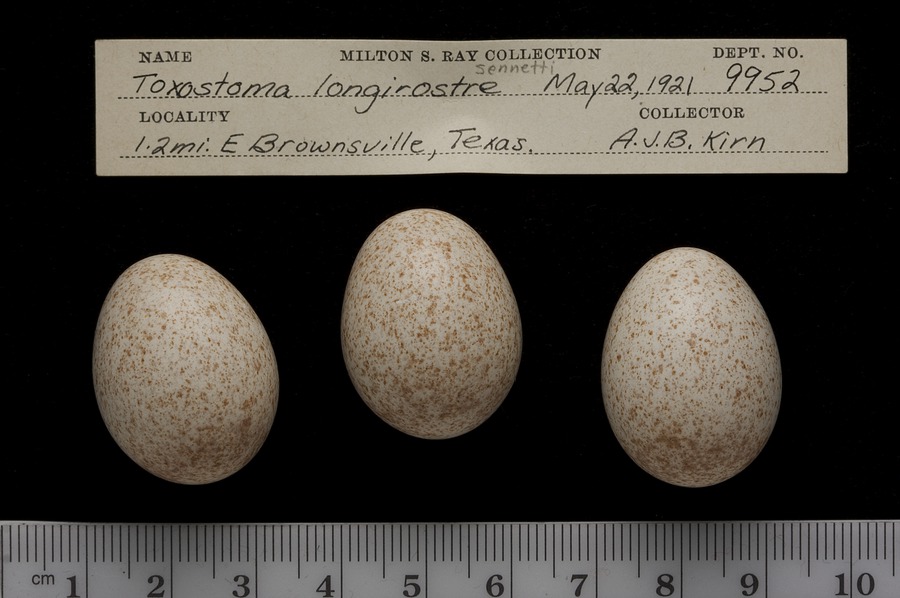 NAME MILTON S. RAY COLLECTION DEPT. NO.
sennetti
Toxostoma longirostre May 22, 1921 9952
LOCALITY COLLECTOR
1.2mi. E Brownsville, Texas. A.J.B. Kirn
cm 1 2 3 4 5 6 7 8 9 10